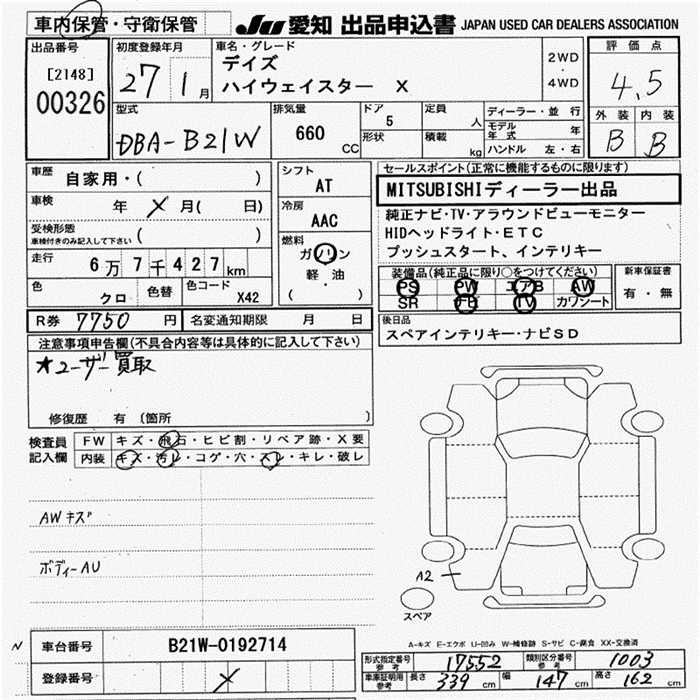 車内保管・守衛保管
JU 愛知 出品申込書 JAPAN USED CAR DEALERS ASSOCIATION
出品番号 初度登録年月 車名・グレード 評価点
[2148] 00326
27 1月
デイズ
ハイウェイスター X
2WD・4WD
4.5
外装 内装
B B
型式 DBA-B21W
排気量 660 CC
ドア 5
形状
定員 人
積載 kg
ディーラー・並行
モデル年式 年
ハンドル 左・右
車歴 自家用・( )
車検 年 X 月( 日)
受検形態 ( )
車検付きのみ記入して下さい
走行 6万7千427km
色 クロ 色替 色コード X42
シフト AT
冷房 AAC
燃料 ガソリン
軽・油
( ・ )
セールスポイント(正常に機能するものに限ります)
MITSUBISHIディーラー出品
純正ナビ・TV・アラウンドビューモニター
HIDヘッドライト・ETC
プッシュスタート、インテリキー
装備品(純正品に限り○をつけてください) 新車保証書
PS PW エアB AW
SR ナビ TV カワシート
有・無
R券 7750円 名変通知期限 月 日
後日品
スペアインテリキー・ナビSD
注意事項申告欄(不具合内容等は具体的に記入して下さい)
★ユーザー買取
修復歴 有 〔箇所 〕
検査員記入欄
FW キズ・飛石・ヒビ割・リペア跡・X要
内装 キズ・汚レ・コゲ・穴・スレ・キレ・破レ
AWキズ
ボディーAU
A2
スペア
A-キズ E-エクボ U-凹み W-補修跡 S-サビ C-腐食 XX-交換済
N
車台番号 B21W-0192714
登録番号 X
形式指定番号 参考 17552 類別区分番号 参考 1003
車庫証明用 参考 長さ 339cm 幅 147cm 高さ 162cm